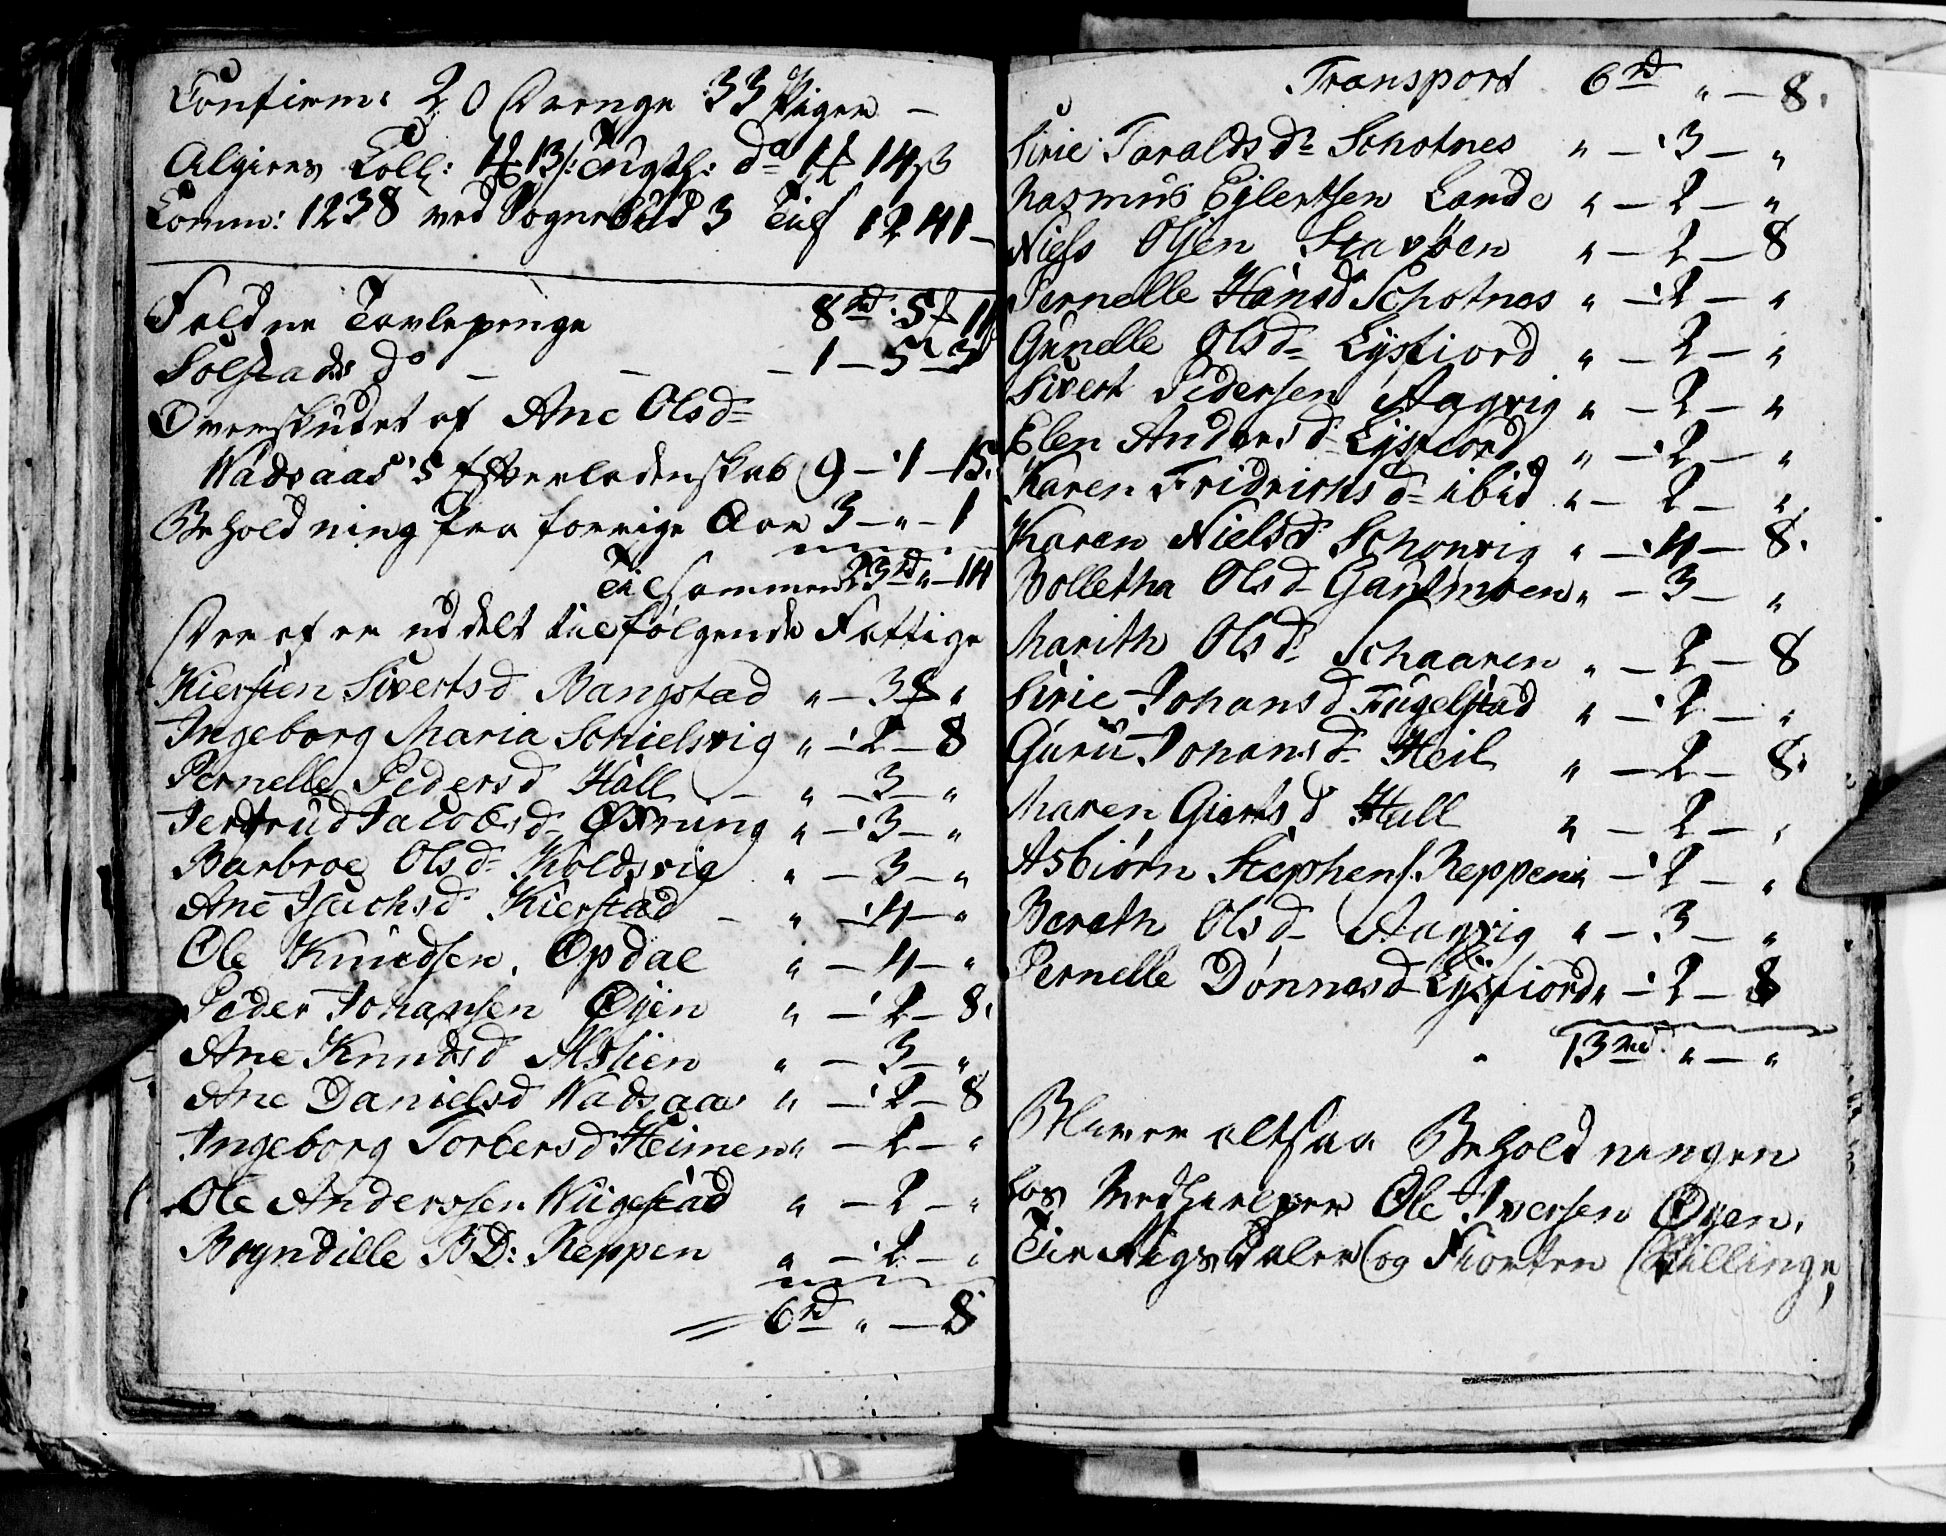 Confirm: 20 Drenge 33 Piger –
Algiers Coll: 4 13/: Tugth: do 4 14 ß
Comm: 1238 ved Sognebud 3 Tils 1241 –
Foldne Tavlepenge 8rd: 5 11
Solstads do – – – 1 – 5 – 3
Overskudet af Ane Olsd=
Wadsaas's Efterladenskab 9 – 1 – 15.
Beholdning fra forrige Aar 3 – " – 1
Tilsammen 23rd " – 14
Der af er uddelt til følgende Fattige
Kiersten Sivertsd Bangstad " – 3 "
Ingeborg Maria Schielsvig " – 2 – 8
Pernelle Pedersd Hall – " – 3 – "
Jertrud Jacobsd – " – 3 – "
Barbroe Olsd= Koldsvig " – 3 – "
Ane Isachsd Kierstad – " – 4 – "
Ole Knudsen Opdal " – 4 – "
Peder Johansen Øyen " – 2 – 8.
Ane Knudsd Alslien " – 3 – "
Ane Danielsd Wadsaas " – 2 – 8
Ingeborg Torbersd Heimen " – 2 – "
Ole Anderssen Wigestad " – 2 – "
Boyndille BD: Reppen " – 2 – "
6rd " – 8
Transport 6rd " – 8.
Sirie Taraldsd= Schotnes " – 3 – "
Rasmus Ejlertsen Lande " – 2 – "
Niels Olsen Stavøen " – 2 – 8
Pernelle Hansd Schotnes " – 2 – "
Gunelle Olsd= Lysfiord " – 2 – "
Sivert Pedersen Aagvig " – 2 – "
Elen Andersd= Lysfiord " – 2 – "
Karen Fridrichsd= ibid " – 2 – "
Karen Nielsd Schonvig " – 4 – 8.
Bolletha Olsd– Gantmoen " – 3 – "
Marith Olsd= Schaaren " – 2 – 8
Sirie Johansd Fugelstad " – 2 – "
Guru Johansd= Heil " – 2 – 8.
Maren Giertsd Hall " – 2 – "
Asbiørn Stephens: Reppen " – 2 – "
Bereth Olsd– Aagvig " – 3 – "
Pernelle Dønnesd– Lysfiord " – 2 – 8
13rd " – "
Bliver altsaa Beholdningen
hos Medhielper Ole Iversen Øyen,
Tie Rigsdaler og Fiorten Skillinge,